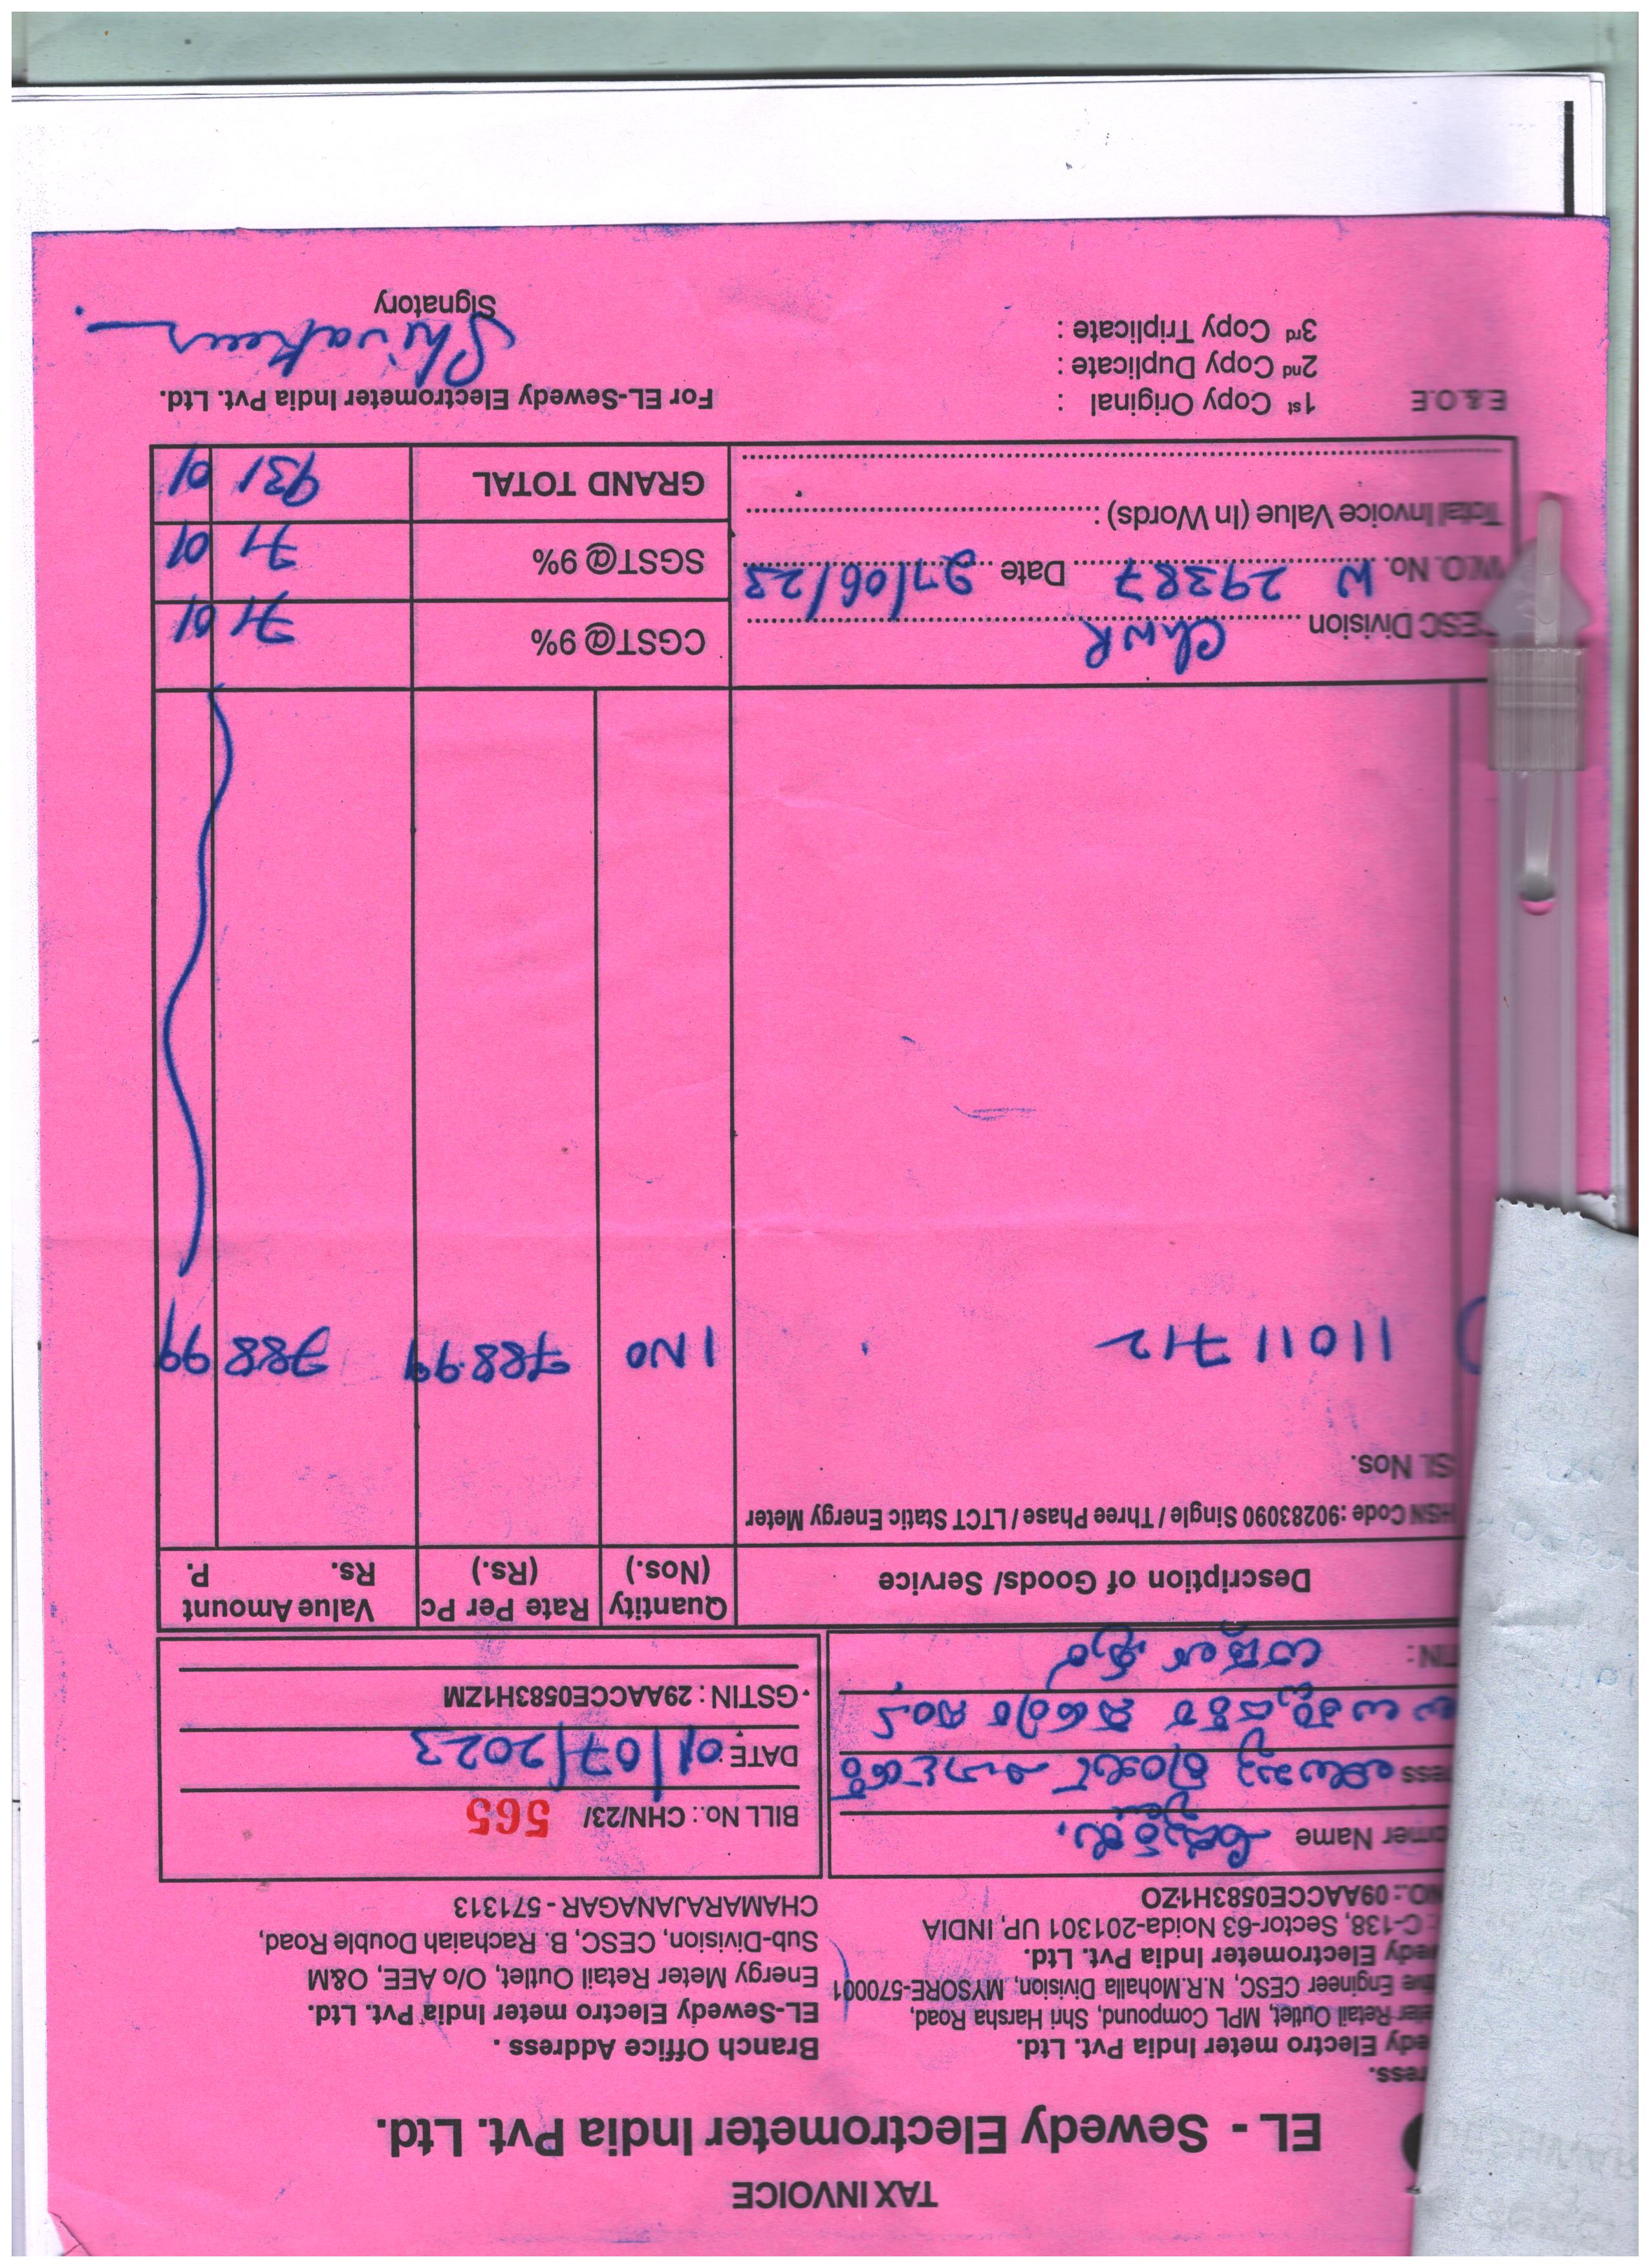 TAX INVOICE
EL - Sewedy Electrometer India Pvt. Ltd.
ress.
edy Electro meter India Pvt. Ltd.
eter Retail Outlet, MPL Compound, Shri Harsha Road,
tive Engineer CESC, N.R.Mohalla Division, MYSORE-570001
edy Electrometer India Pvt. Ltd.
C-138, Sector-63 Noida-201301 UP, INDIA
NO.: 09AACCE0583H1ZO
Branch Office Address .
EL-Sewedy Electro meter India Pvt. Ltd.
Energy Meter Retail Outlet, O/o AEE, O&M
Sub-Division, CESC, B. Rachaiah Double Road,
CHAMARAJANAGAR - 571313
omer Name
ess
TIN :
BILL No.: CHN/23/ 565
DATE : 01/07/2023
GSTIN : 29AACCE0583H1ZM
Description of Goods/ Service
Quantity (Nos.)
Rate Per Pc (Rs.)
Value Amount Rs. P.
HSN Code :90283090 Single / Three Phase / LTCT Static Energy Meter
SL Nos.
11011712 1 NO 788.99 788 99
CESC Division ChNR
W.O. No. W 29387 Date 27/06/23
Total Invoice Value (In Words) :
CGST@ 9% 71 01
SGST@ 9% 71 01
GRAND TOTAL 931 01
E & O.E
1st Copy Original :
2nd Copy Duplicate :
3rd Copy Triplicate :
For EL-Sewedy Electrometer India Pvt. Ltd.
Signatory